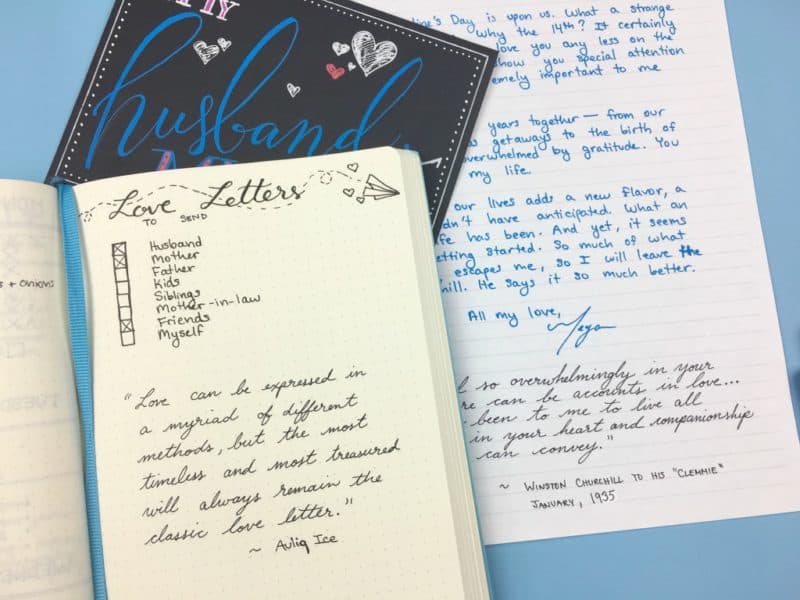 MY
husband
Love Letters
TO SEND
Husband
Mother
Father
Kids
Siblings
Mother-in-law
Friends
Myself
"Love can be expressed in
a myriad of different
methods, but the most
timeless and most treasured
will always remain the
classic love letter."
~ Auliq Ice
s + onions
Day is upon us. What a strange
Why the 14th? It certainly
love you any less on the
show you special attention
important to me
years together — from our
getaways to the birth of
overwhelmed by gratitude. You
my life.
our lives adds a new flavor, a
have anticipated. What an
has been. And yet, it seems
getting started. So much of what
escapes me, so I will leave the
He says it so much better.
All my love,
Megan
so overwhelmingly in your
can be accounts in love...
been to me to live all
in your heart and companionship
can convey."
~ WINSTON CHURCHILL TO HIS "CLEMMIE"
JANUARY, 1935